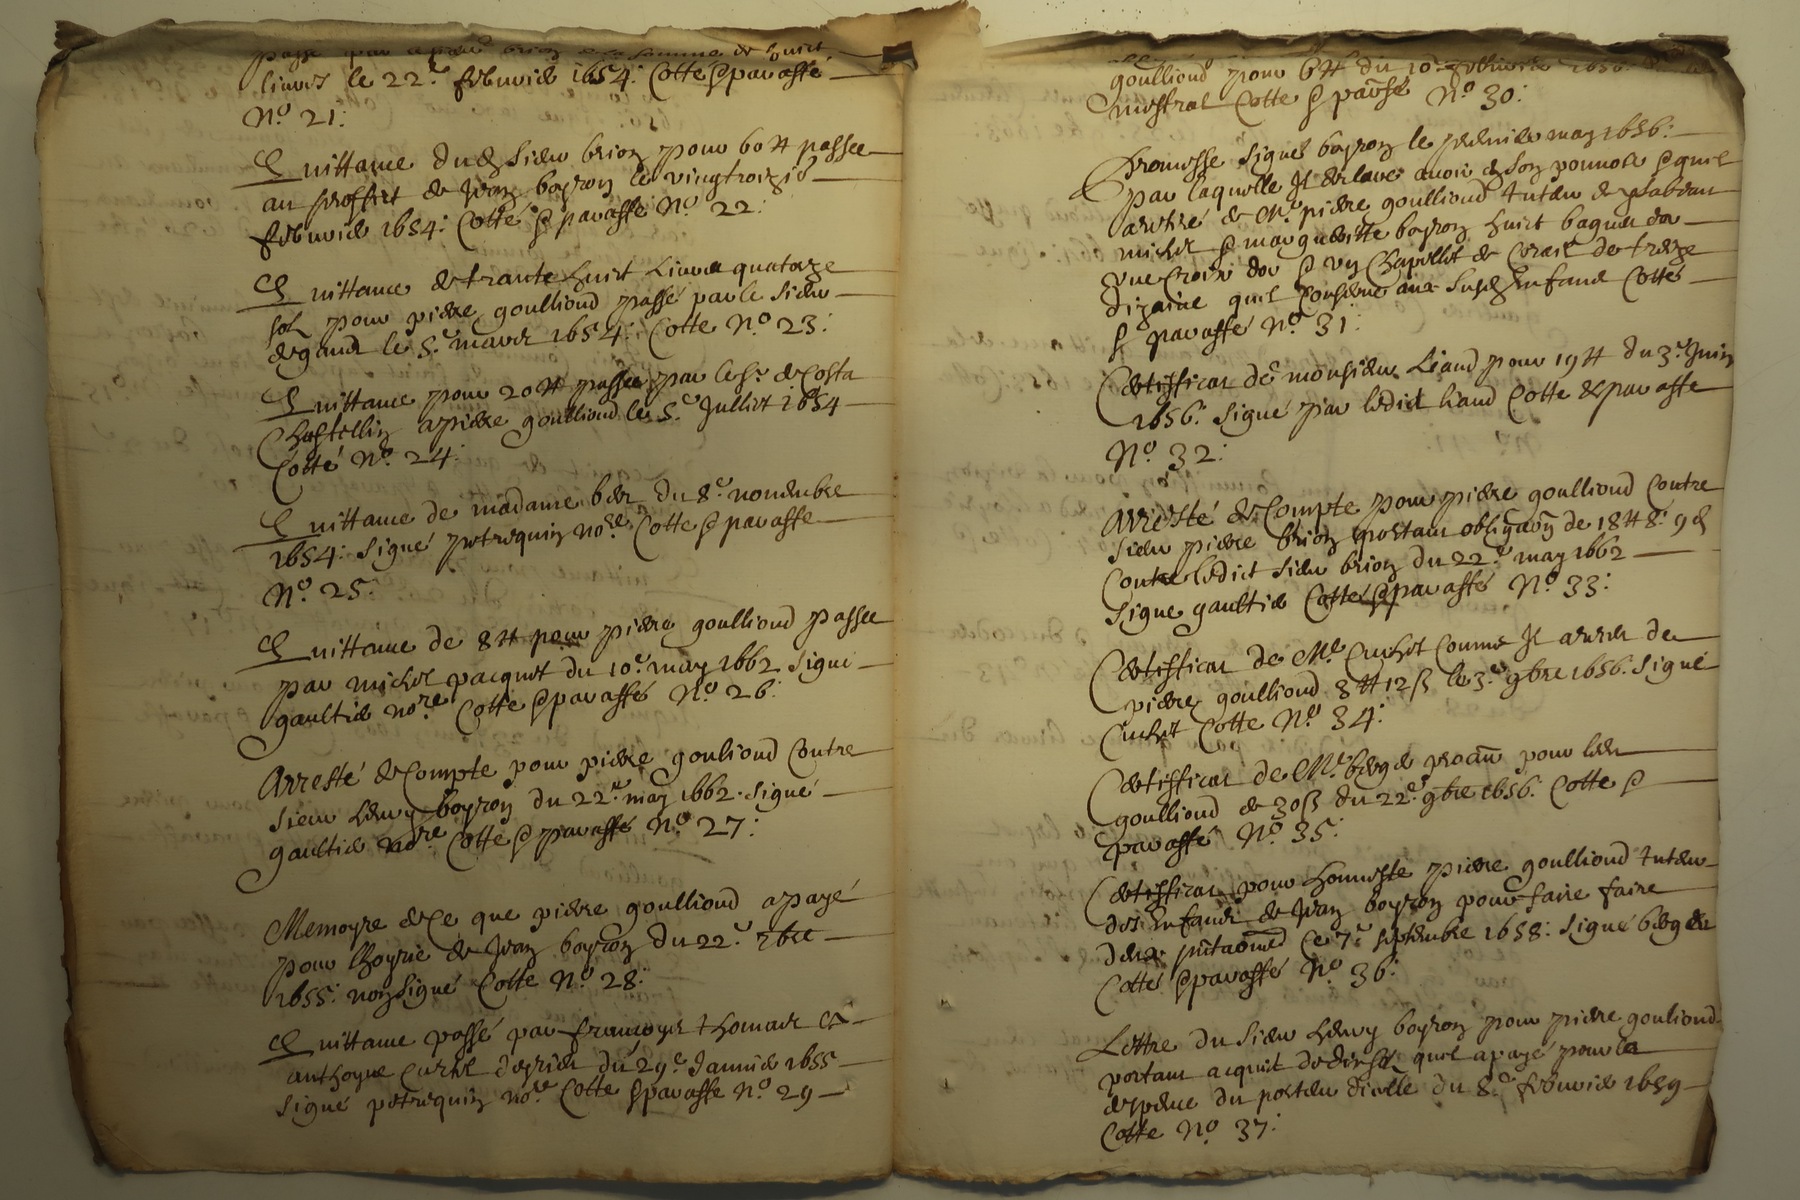 passé par ledict sieur brion de la somme de huict
livres le 22e febvrier 1654: Cotté & paraffé
No. 21:
Quittance dud sieur brion pour 60 # passee
au proffict de Jean boyron le vingtroizie
febvrier 1654: Cotté & paraffé No. 22:
Quittance de trante huict Livres quatorze
solz pour pierre goulliond passé par le sieur
degand le 5e mars 1654: Cotte No. 23:
Quittance pour 20 # passee par le sr. de Costa
Chastellin a pierre goulliond le 5e Juillet 1654
Cotté No. 24:
Quittance de madame ber du 8e novembre
1654: signé petrequin nore Cotte & paraffe
No. 25:
Quittance de 8 # pour pierre goulliond passee
par michel pacquot du 10e may 1662 signé
gaultier nore Cotte & paraffé No. 26:
Arresté de Compte pour pierre gouliond Contre
sieur henry boyron du 22e may 1662. signé
gaultier nore Cotte & paraffé No. 27:
Memoyre de Ce que pierre goulliond a payé
pour lhoyrie de Jean boyron du 22e xbre
1655: non signé Cotte No. 28:
Quittance passé par françoyse thomas et
anthoyne curtil du 29e Janvier 1655
signé petrequin nore Cotte & paraffe No. 29
goulliond pour 6 # du 10e febvrier 1656:
mestral Cotte & paraffé No. 30:
Promesse signé boyron le premier may 1656:
par laquelle Il declare avoir en son pouvoir & quil
a retiré de Me. pierre goulliond tuteur de
michel & margueritte boyron huict bagues dor
une Croix dor & un Chapellet de Corail de treze
dizaine quil Conserve aux susd Enfans Cotté
& paraffé No. 31:
Certifficat de monsieur Liand pour 19 # du 3e Juin
1656: signé par ledict liand Cotte & paraffe
No. 32:
Arresté de Compte pour pierre goulliond Contre
sieur pierre brion portant obligaon de 18 # 8s 9d
Contre ledict sieur brion du 22e may 1662
signe gaultier Cotté & paraffé No. 33:
Certifficat de Me. Cuchet Comme Il a receu de
pierre goulliond 8 # 12 ß le 3e 9bre 1656. signé
Cuchet Cotte No. 34:
Certifficat de Me. berger procur pour led
goulliond de 30 ß du 22e 9bre 1656. Cotte &
paraffé No. 35:
Certifficat pour honneste pierre goulliond tuteur
des Enfans de Jean boyron pour faire faire
deux Inventaoires Ce 7e septembre 1658: signé berger
Cotté & paraffé No. 36:
Lettre du sieur henry boyron pour pierre gouliond
portant acquit de dix solz quil a payé pour la
despence du porteur dicelle du 8e febvrier 1659
Cotte No. 37: